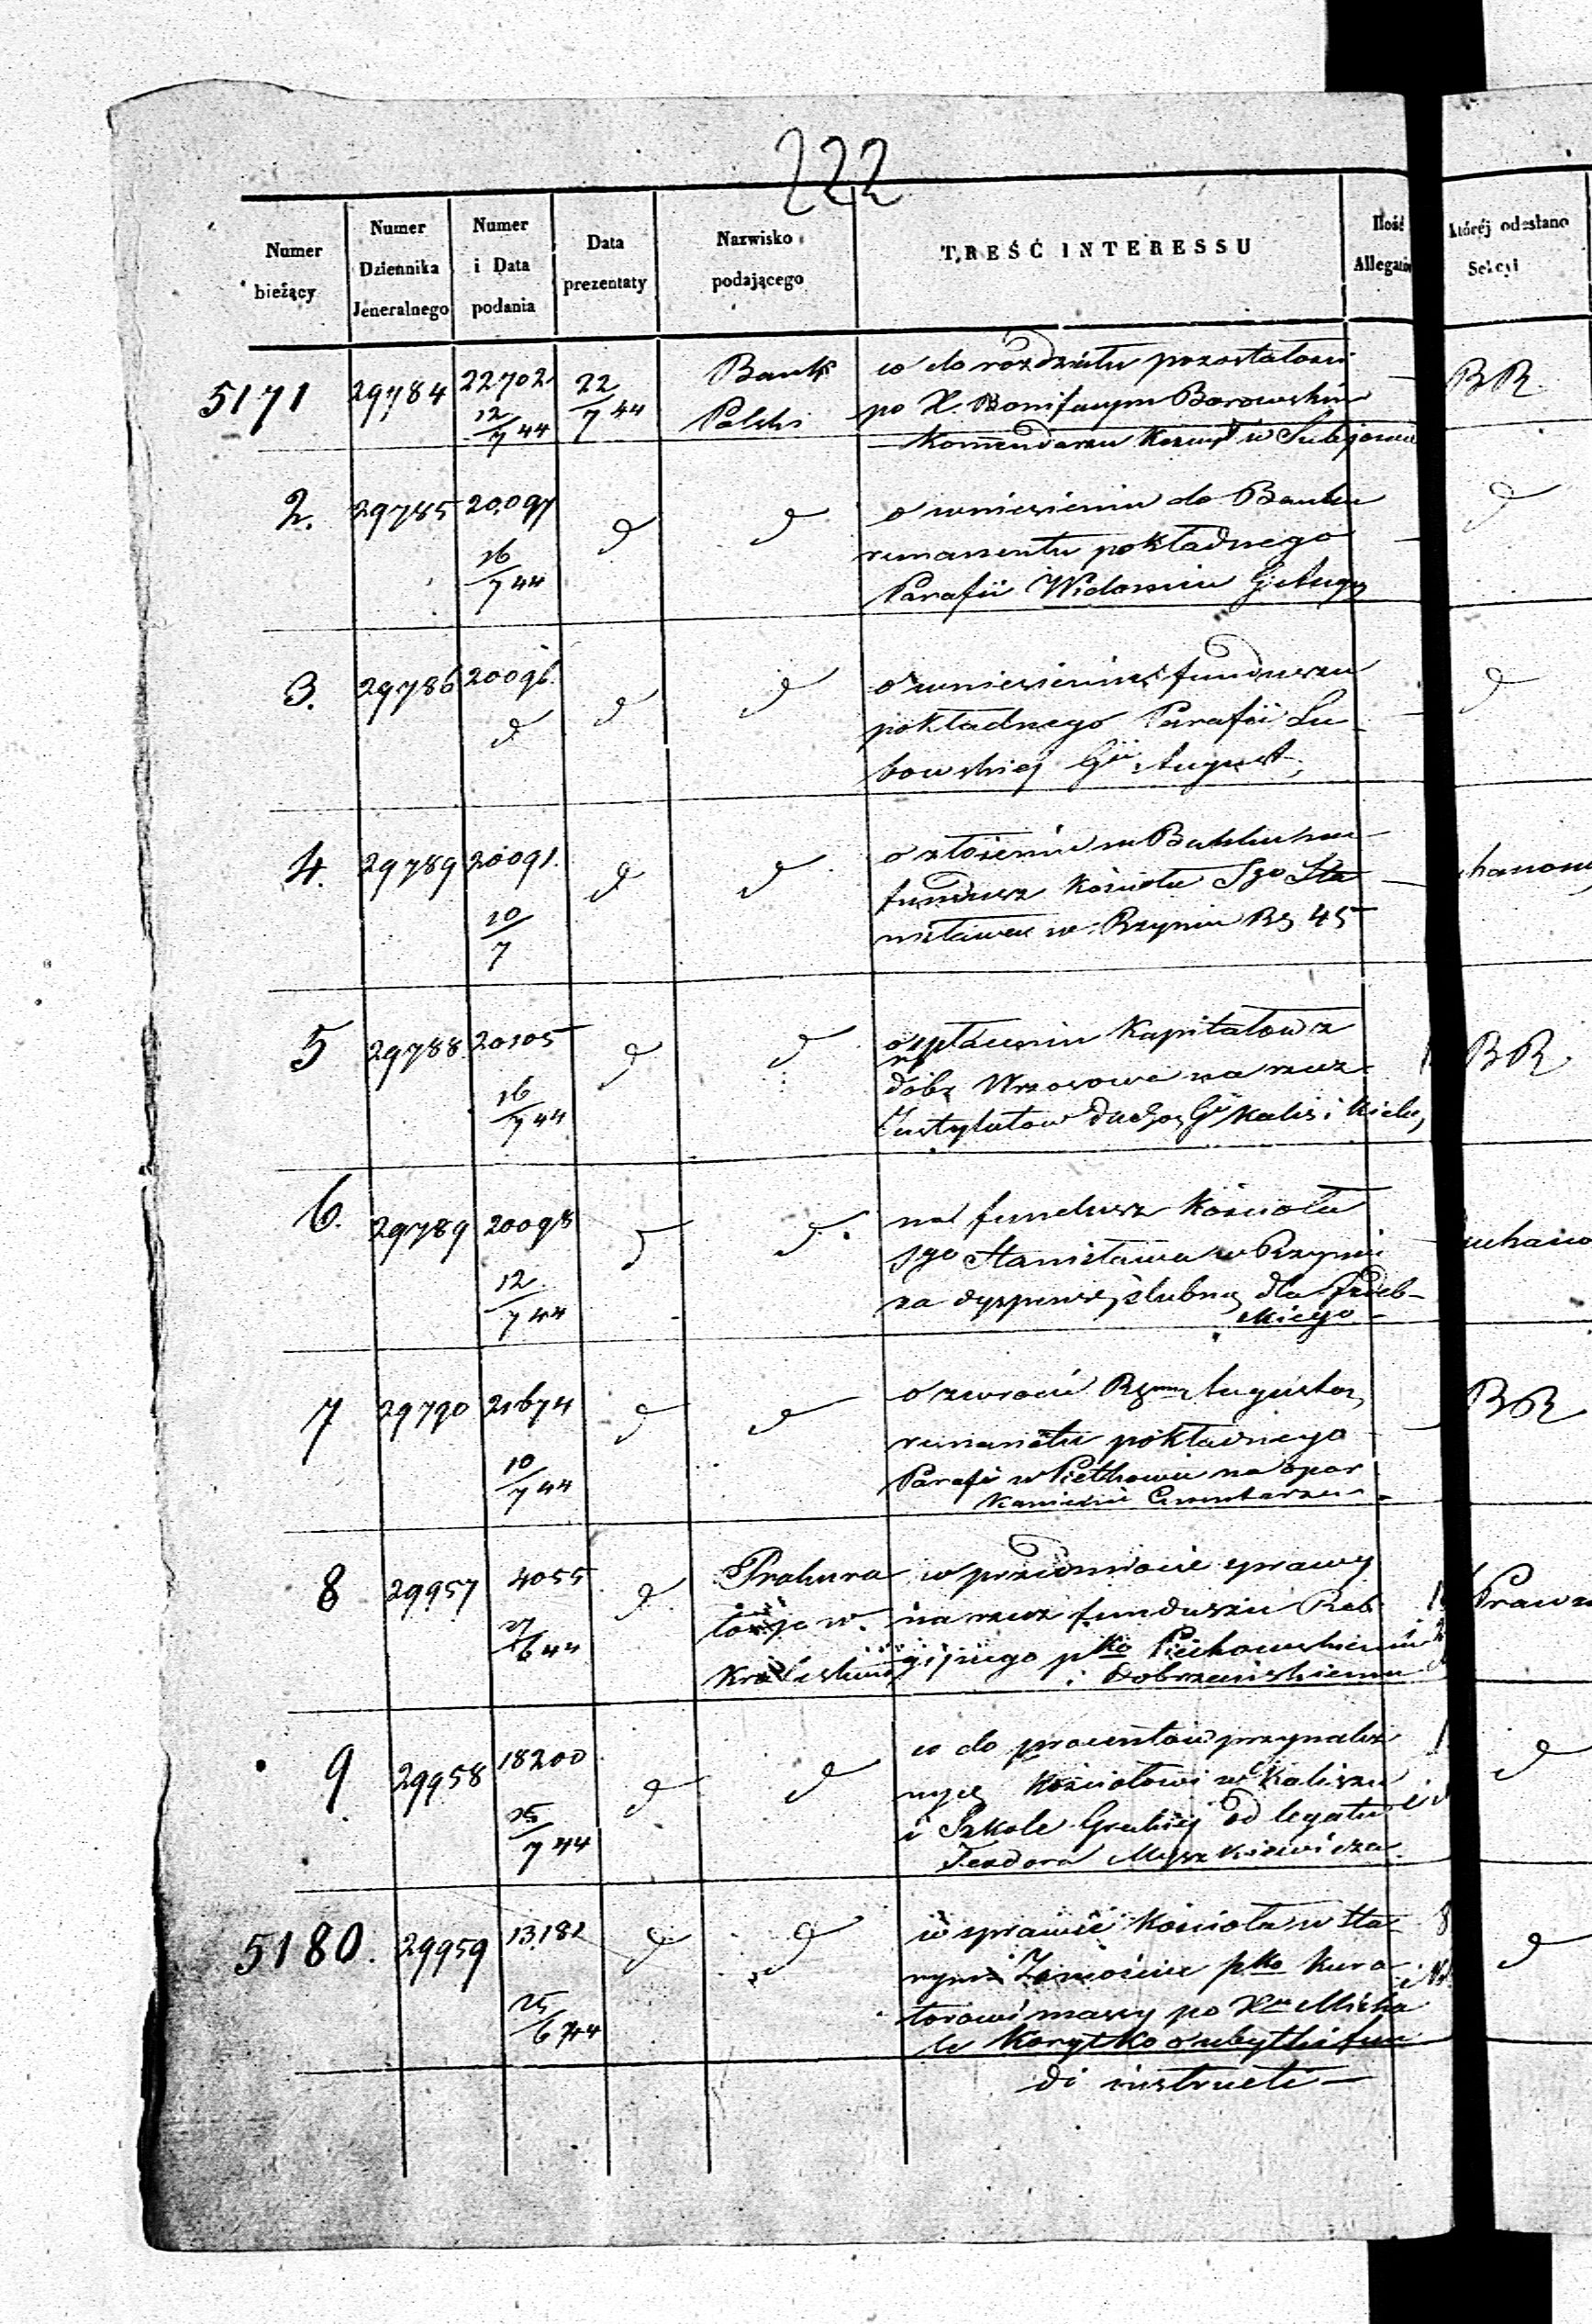 222
Numer bieżący
Numer Dziennika Jeneralnego
Numer i Data podania
Data prezentaty
Nazwisko podającego
TREŚĆ INTERESSU
Ilość
któréj odesłano Sekcyi
5171 29784 22702 12/7 44 22/7 44 Bank Polski
co do rozdziału pozostałości
po X. Bonifacym Borowskim
BR
2. 29785 20097 16/7 44 d d
o wniesieniu do Banku
remanentu pokładnego
Parafii
d
3. 29786 20096 d d d
o wniesieniu funduszu
pokładnego Parafii Lu
bowskiej Gu August,
d
4. 29789 20091. 10/7 d d
o złożeniu w Banku na
fundusz Kościoła Sgo Sta
nisława w Rzymie Rs 45
5 29788 20105 16/7 44 d d
Kapitałow z
dobr Wrzosowa na rzecz
Instytutow Gu Kalis i Kiele,
BR
6. 29789 20098 12/7 44 d d.
na fundusz Kościoła
Sgo Stanisława w Rzymie
za dyspensę ślubną dla
7 29790 21674 10/7 44 d d
o zwrocie
remanentu pokładnego
Parafi w na opar
kanienie Cmentarza
BR
8 29957 4055 27/6 44 d
Prokura
torja w.
w przedmiocie sprawy
na rzecz funduszu Reli
gijnego pko Piechowskiemu
i Dobrzanskiemu
9 29958 18200 25/7 44 d d
co do procentów przynależ
nych Kościołowi w Kaliszu
i Szkole Greckiej od legatu
Teodora
d
5180. 29959 13182 25/6 44 d d
w sprawie Kościoła w Sta
rym Zamościu pko Kura
torowi massy po Xu Micha
le Korytko o ubytki fun
di instructi
8
d